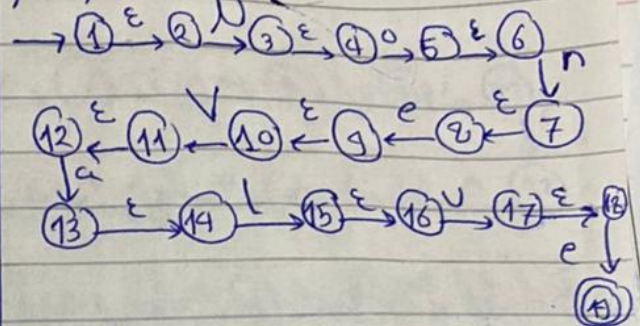 1 ε 2 N 3 ε 4 o 5 ε 6
n
12 ε 11 V 10 ε 9 e 8 ε 7
a
13 ε 14 l 15 ε 16 U 17 ε 18
e
19